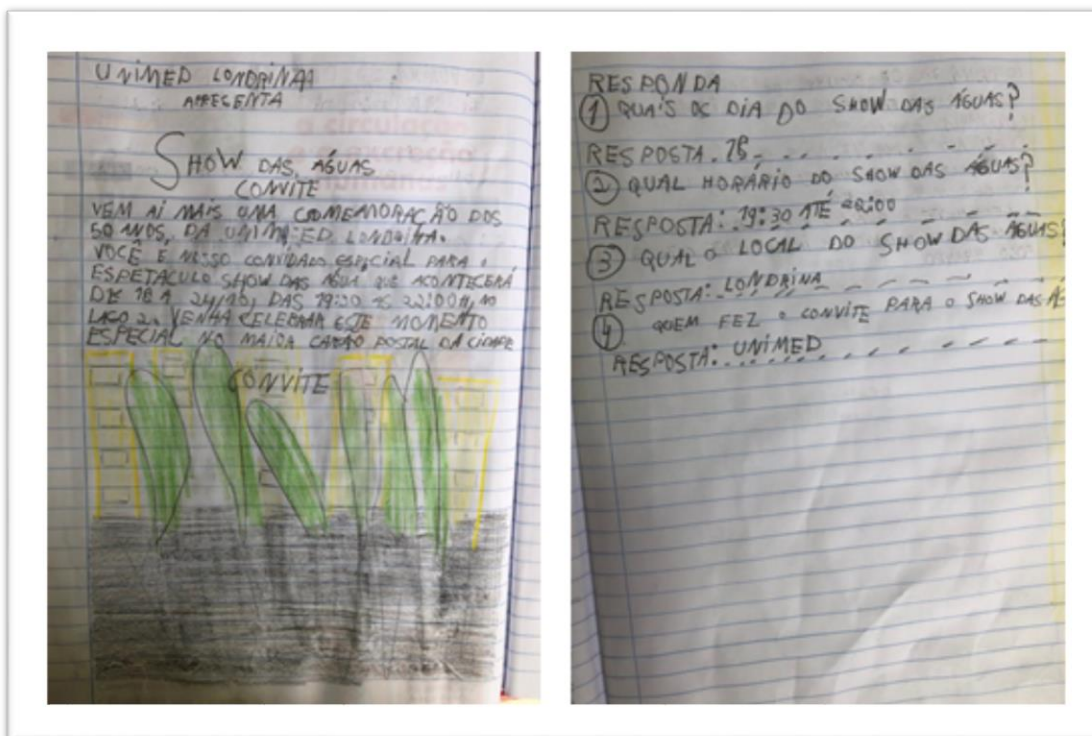 UNIMED LONDRINA
APRESENTA
SHOW DAS ÁGUAS
CONVITE
VEM AI MAIS UMA COMEMORAÇÃO DOS
50 ANOS, DA UNIMED LONDRINA.
VOCÊ E NOSSO CONVIDADO ESPECIAL PARA O
ESPETACULO SHOW DAS ÁGUA QUE ACONTECERÁ
DE 18 A 24/10, DAS 19:30 AS 22:00H, NO
LAGO 2. VENHA CELEBRAR ESTE MOMENTO
ESPECIAL NO MAIOR CARTÃO POSTAL DA CIDADE
CONVITE
RESPONDA
1 QUAIS OS DIA DO SHOW DAS ÁGUAS?
RESPOSTA.
2 QUAL HORÁRIO DO SHOW DAS ÁGUAS?
RESPOSTA: 19:30 ATÉ 22:00
3 QUAL O LOCAL DO SHOW DAS ÁGUAS?
RESPOSTA: LONDRINA
4 QUEM FEZ O CONVITE PARA O SHOW DAS
RESPOSTA: UNIMED